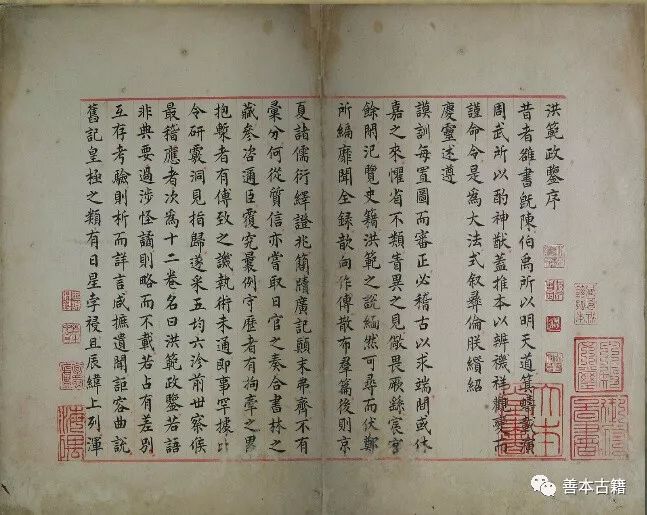 洪範政鑒序
昔者雒書既陳伯禹所以明天道箕疇載演
周武所以酌神猷蓋推本以辨禨祥觀變而
謹命令是為大法式叙彝倫朕纘紹
慶靈述遵
謨訓每置圖而審正必稽古以求端間或休
嘉之來懼省不類眚異之見儆畏厥繇宸宫
餘閒汜覽史籍洪範之説緬然可尋而伏鄭
所編靡聞全録歆向作傳散布羣篇後則京
夏諸儒衍繹證兆簡牘廣記顛末弗齊不有
彙分何從質信亦嘗取日官之奏合書林之
藏參咨通臣覆究曩例守歷者有拘牽之累
抱槧者有傅致之譏執術未通即事罕據
令研覈洞見指歸遂采五均六沴前世察候
最稽應者次為十二卷名曰洪範政鑒若語
非典要過涉怪譎則略而不載若占有差别
互存考驗則析而詳言咸摭遺聞詎容曲説
舊記皇極之類有日星孛祲且辰緯上列渾
善本古籍